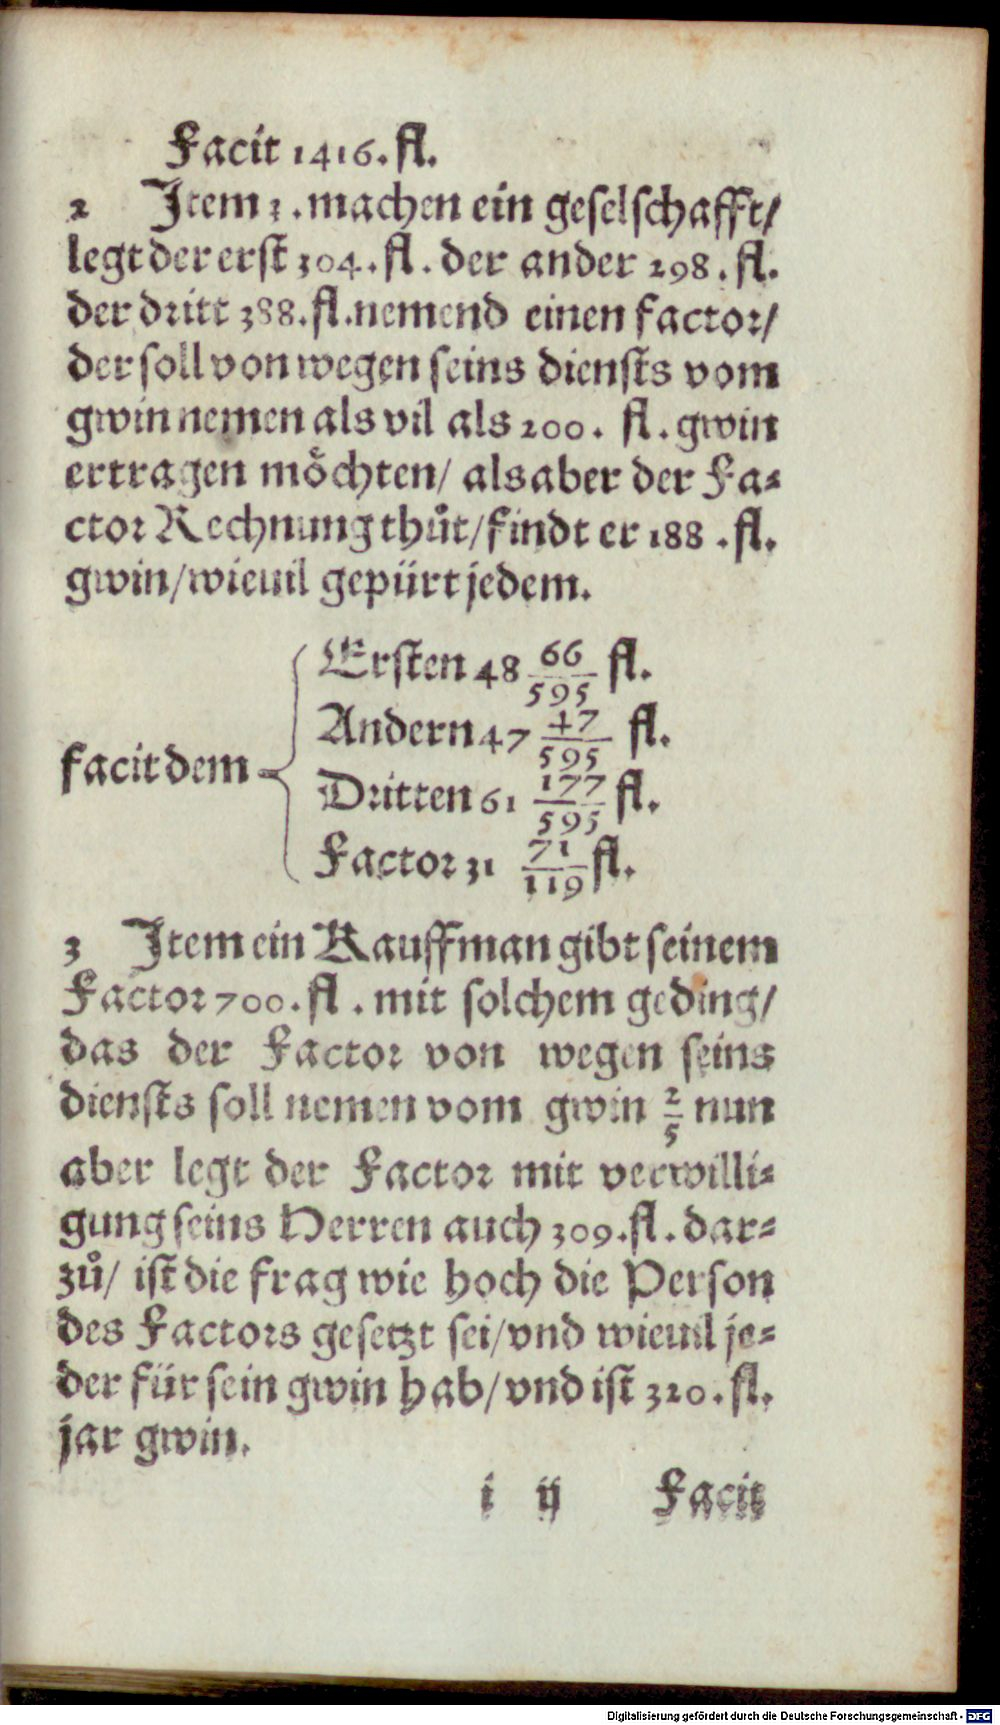 Facit 1416. fl.
2 Item 3. machen ein geselschafft/
legt der erst 304. fl. der ander 298. fl.
der dritt 388. fl. nemend einen factor/
der soll von wegen seins diensts vom
gwin nemen als vil als 200. fl. gwin
ertragen moͤchten/ als aber der Fa-
ctor Rechnung thuͦt/ findt er 188. fl.
gwin/ wieuil gepürt jedem.
facit dem
Ersten 48 66/595 fl.
Andern 47 47/595 fl.
Dritten 61 177/595 fl.
Factor 31 71/119 fl.
3 Item ein Kauffman gibt seinem
Factor 700. fl. mit solchem geding/
das der Factor von wegen seins
diensts soll nemen vom gwin 2/5 nun
aber legt der Factor mit verwilli-
gung seins Herren auch 309. fl. dar-
zuͦ/ ist die frag wie hoch die Person
des Factors gesetzt sei/ vnd wieuil je-
der für sein gwin hab/ vnd ist 320. fl.
jar gwin.
i ij Facit
Digitalisierung gefördert durch die Deutsche Forschungsgemeinschaft - DFG